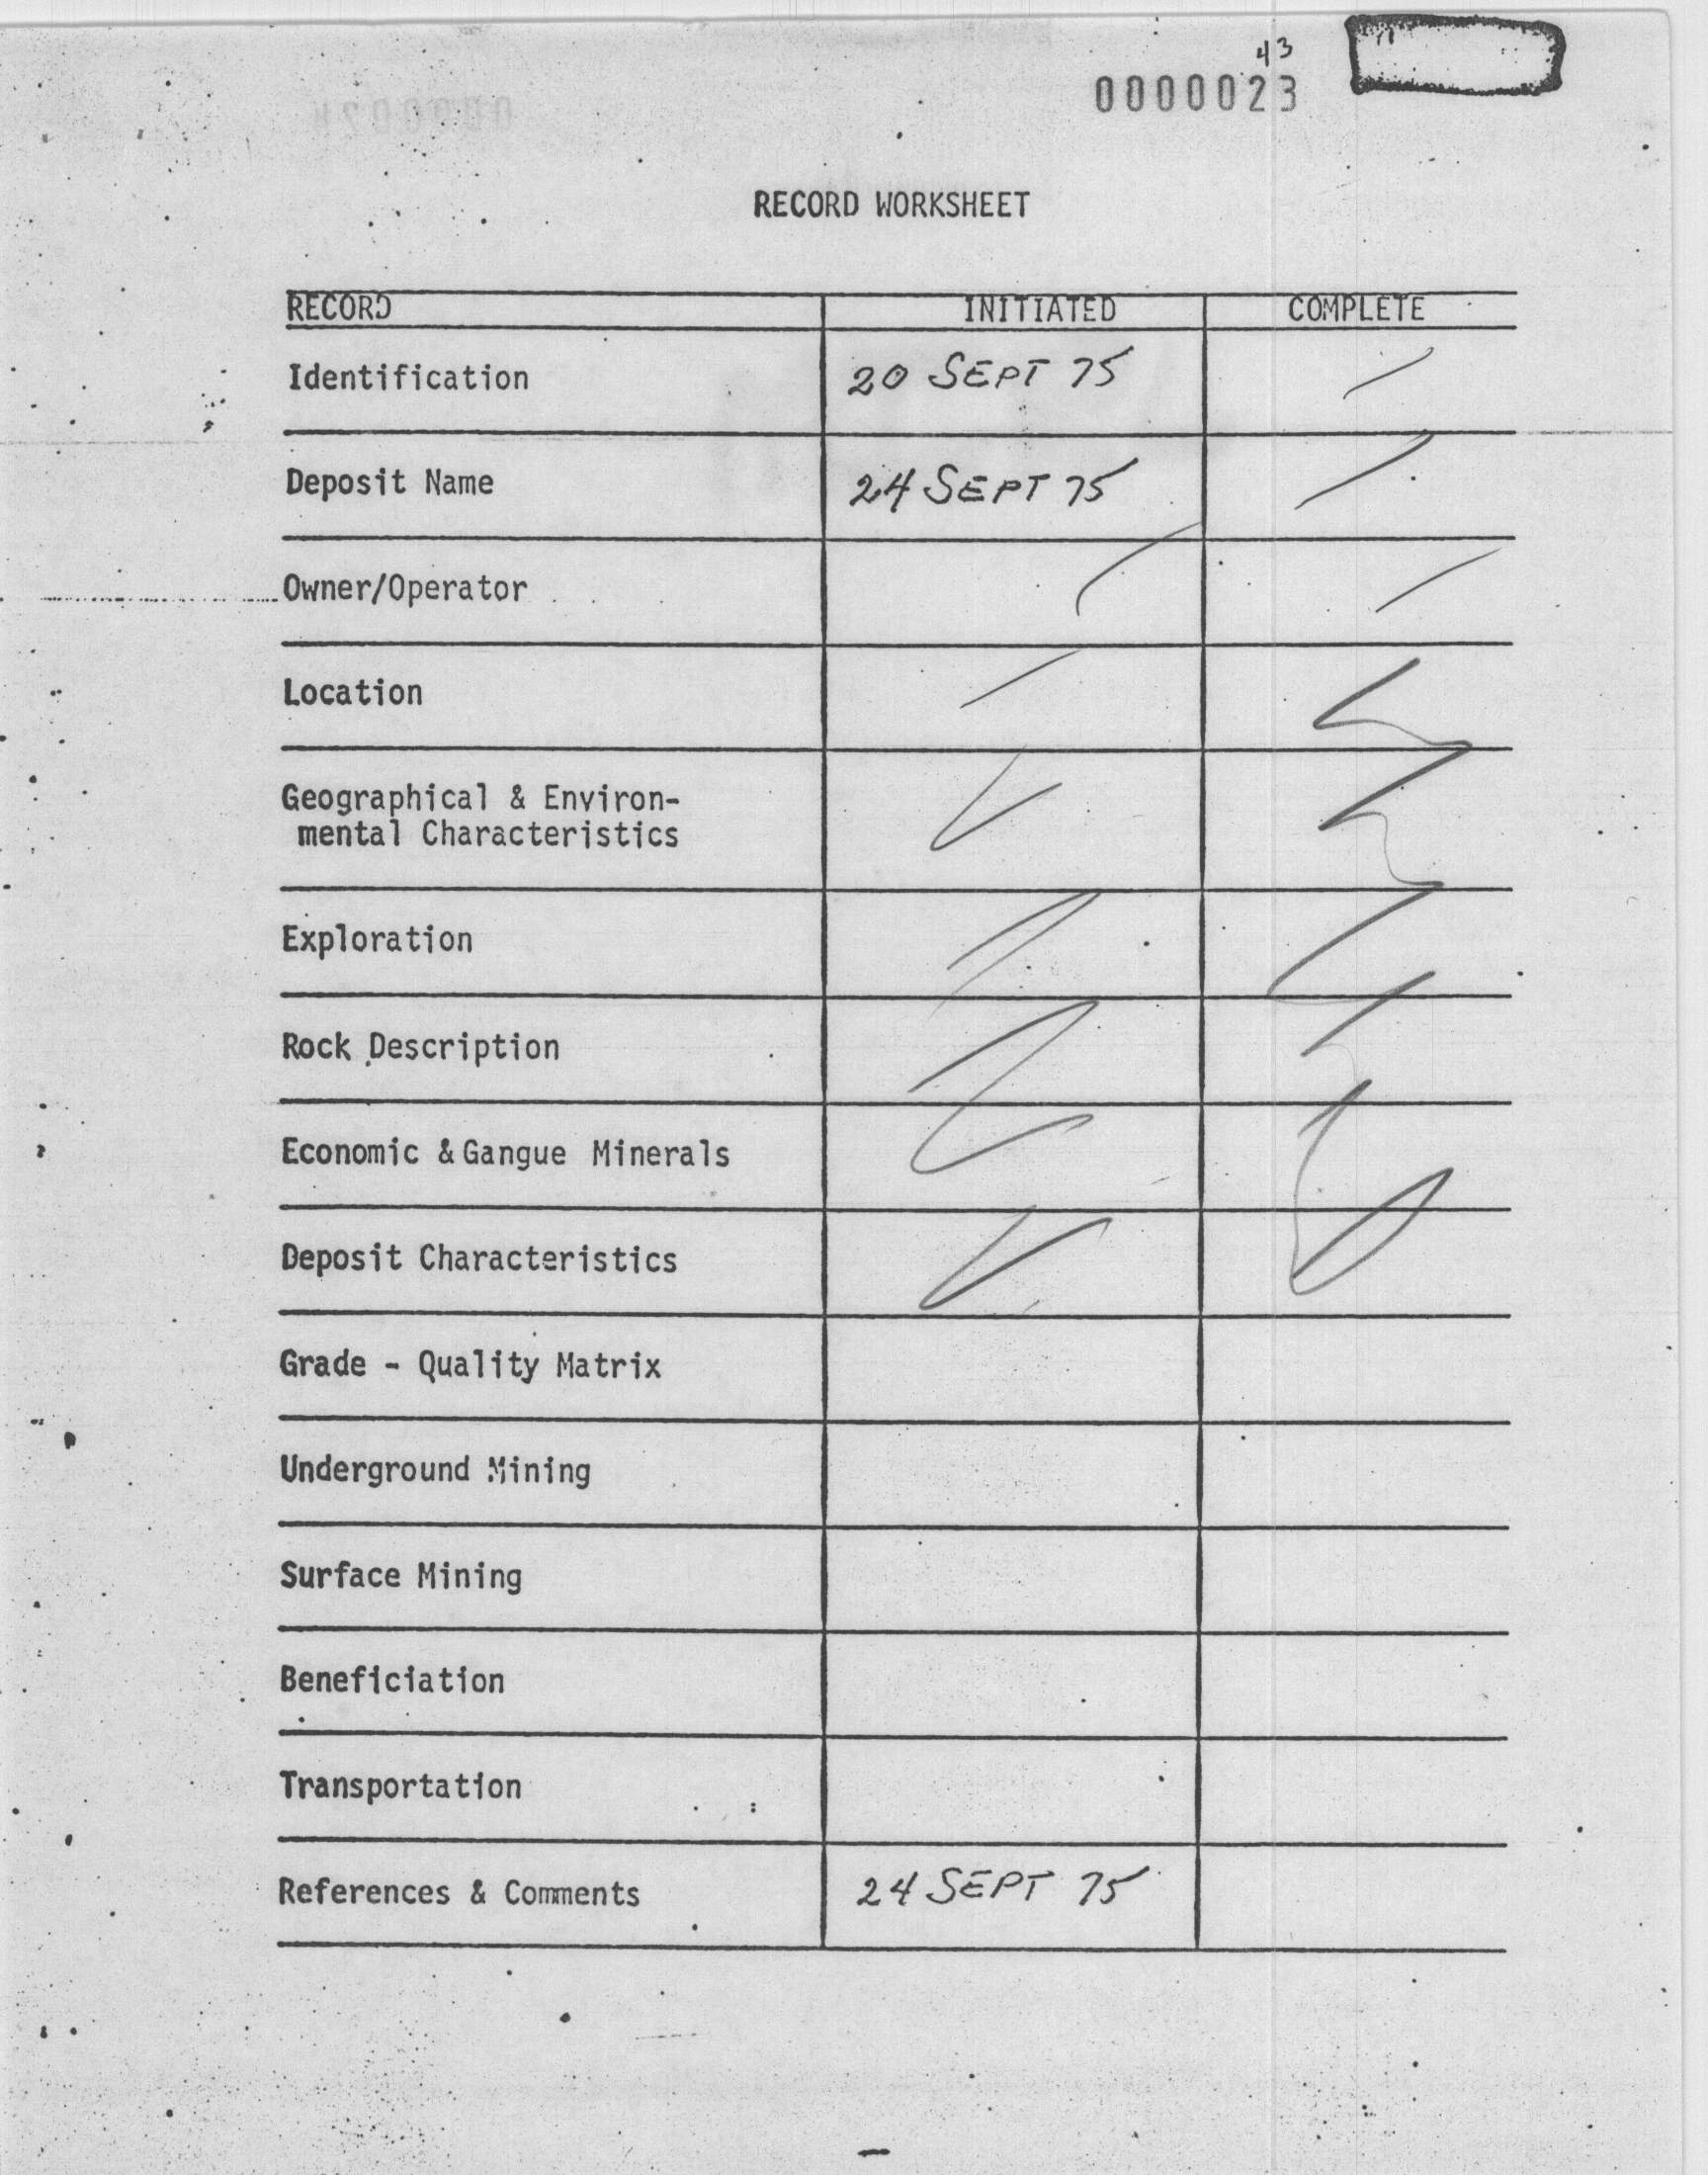 43
0000023
RECORD WORKSHEET
RECORD INITIATED COMPLETE
Identification 20 SEPT 75
Deposit Name 24 SEPT 75
Owner/Operator
Location
Geographical & Environ-
mental Characteristics
Exploration
Rock Description
Economic & Gangue Minerals
Deposit Characteristics
Grade - Quality Matrix
Underground Mining
Surface Mining
Beneficiation
Transportation
References & Comments 24 SEPT 75